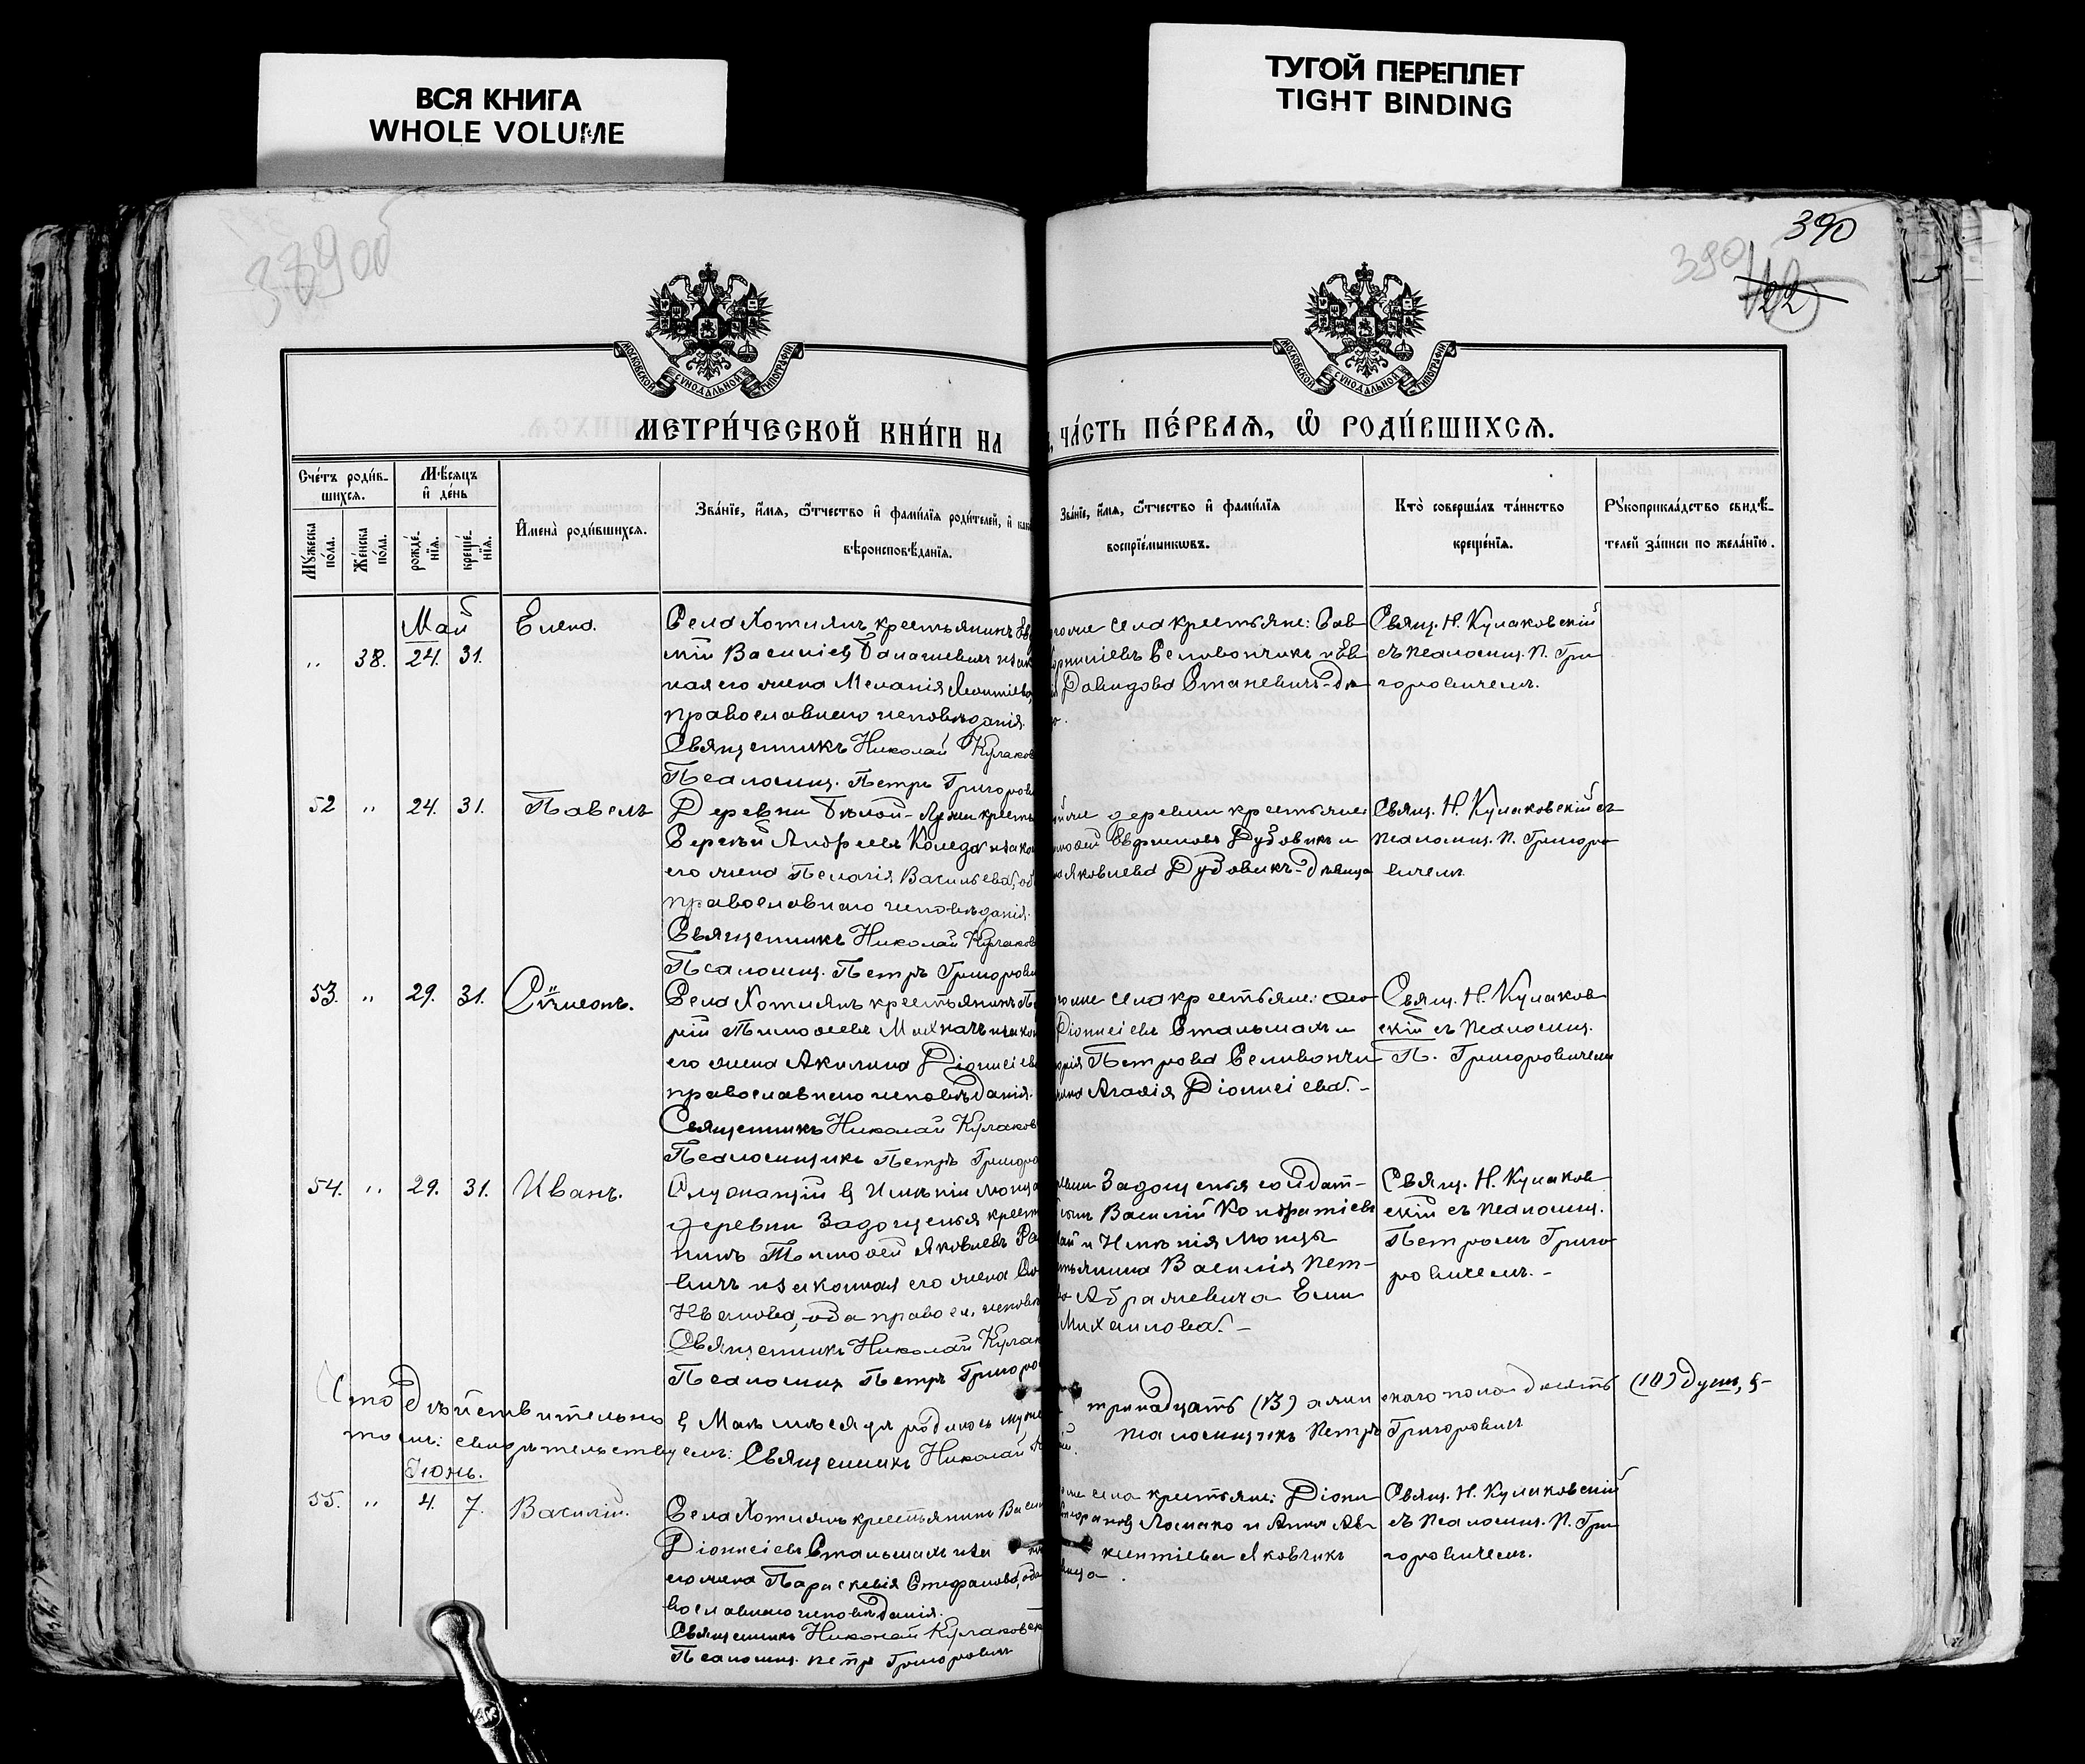 ВСЯ КНИГА
WHOLE VOLUME
ТУГОЙ ПЕРЕПЛЕТ
TIGHT BINDING
390
389 об
390
22
МОСКОВСКОЙ СѴНОДАЛЬНОЙ ТИПОГРАФІИ
МОСКОВСКОЙ СѴНОДАЛЬНОЙ ТИПОГРАФІИ
МЕТРИ́ЧЕСКОЙ КНИ́ГИ НА
ЧА́СТЬ ПЕ́РВАѦ, Ѡ РОДИ́ВШИХСѦ.
Сче́тъ роди́в-
шихся.
Мѣ́сяцъ
и҆ де́нь
Мꙋжеска
по́ла.
Же́нска
по́ла.
рожде́-
нїя.
креще́-
нїя.
И҆мена̀ роди́вшихся.
Зва́нїе, и҆́мя, ѻ҆́тчество и҆ фами́лїя роди́телей, и҆ как
вѣроисповѣ́данїя.
Зва́нїе, и҆́мя, ѻ҆́тчество и҆ фами́лїя
воспрїе́мниковъ.
Кто̀ соверша́лъ та́инство
креще́нїя.
Рꙋкоприкла́дство свидѣ́-
телей за́писи по жела́нїю.
Май
„ 38. 24. 31.
Елена.
Села Хотиляъ крестьянинъ
Василіевъ
ная его жена Меланія Леонтіева,
православнаго исповѣданія.
Священникъ Николай Кулаков
Псаломщ. Петръ Григорови
села крестьяне: Сав
Селивончикъ и Ев
Давидова Станевичъ-дѣ
Свящ. Н. Кулаковскій
съ псаломщ. П. Гри
горовичемъ.
52 „ 24. 31.
Павелъ
Деревни Бѣлой-Лужи кресть
Сергѣй Андреевъ Коледа и зако
его жена Пелагія Васильева, об
православнаго исповѣданія.
Священникъ Николай Кулаков
Псаломщ. Петръ Григорови
деревни крестьяне
Дудовикъ и
Яковлева Дудовикъ-дѣвица
Свящ. Н. Кулаковскій съ
псаломщ. П. Григоро
вичемъ
53. „ 29. 31.
Сѵмеонъ.
Села Хотиляъ крестьянинъ
рій Тимоѳеевъ Михначъ и зако
его жена Акилина Діонисіев
православнаго исповѣданія.
Священникъ Николай Кулаков
Псаломщикъ Петръ Григоро
села крестьяне: Ѳео
Діонисіевъ Стальмахъ и
Петрова Селивончи
Агаѳія Діонисіева.-
Свящ. Н. Кулаков
скій съ псаломщ.
П. Григоровичемъ
54. „ 29. 31.
Иванъ.
Служащій въ Имѣніи
деревни Задощенья крест
нинъ Тимоѳей Яковлевъ Ра
вичъ и законная его жена
Иванова, оба правосл. исповѣ
Священникъ Николай Кулак
Псаломщ. Петръ Григоро
Задощенья солдат-
Василій Кондратіевъ
и Имѣнія
Василія Пет-
Абрамевича
Михайлова.-
Свящ. Н. Кулаков
скій съ псаломщ.
Петромъ Григо
ровичемъ.-
Что дѣйствительно въ Маѣ мѣсяцѣ родилось муже
тринадцать (13) а женскаго пола десять (10) душъ, въ
томъ: свидѣтельствуемъ: Священникъ Николай
псаломщикъ Петръ Григоровичъ
Іюнь.
55. „ 4. 7.
Василій.
Села Хотиляъ крестьянинъ Васи
Діонисіевъ Стальмахъ и за
его жена Параскевія Стефанова, оба
вославнаго исповѣданія.
Священникъ Николай Кулаковск
Псаломщ. Петръ Григорович
села крестьяне: Діони
Ломако и Анна Ав
Яковчикъ
Свящ. Н. Кулаковскій
съ псаломщ. П. Гри
горовичемъ.